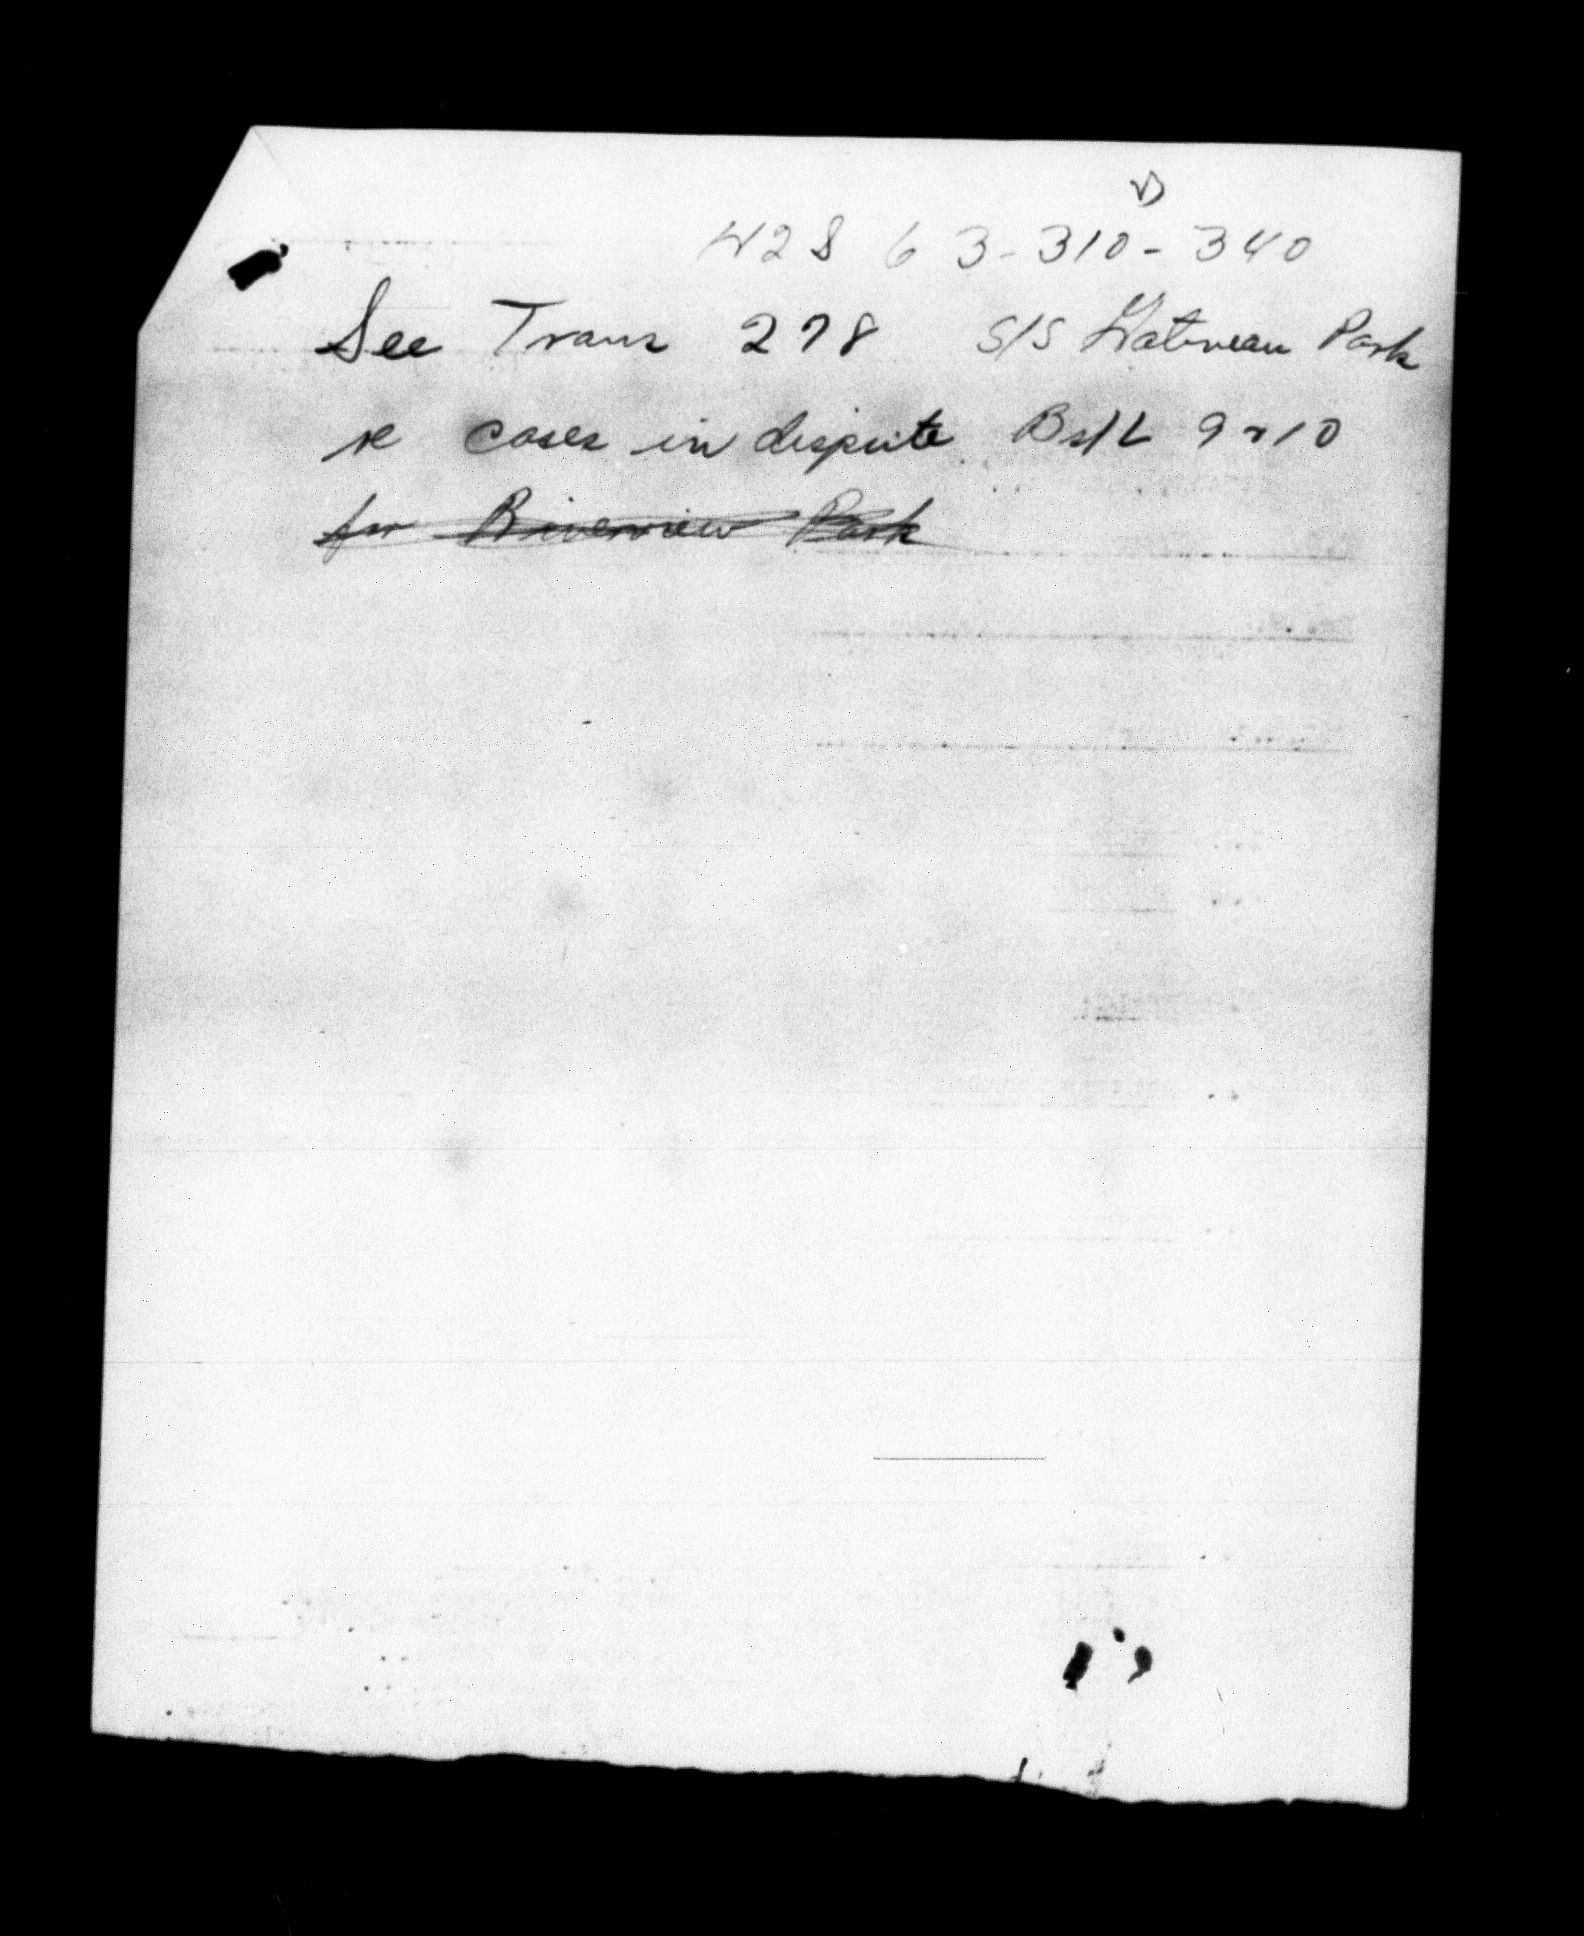 H2S 63-310-340
See Trans 278 S/S Gatineau Park
re cases in dispute Bs/L 9 & 10
for Riverview Park